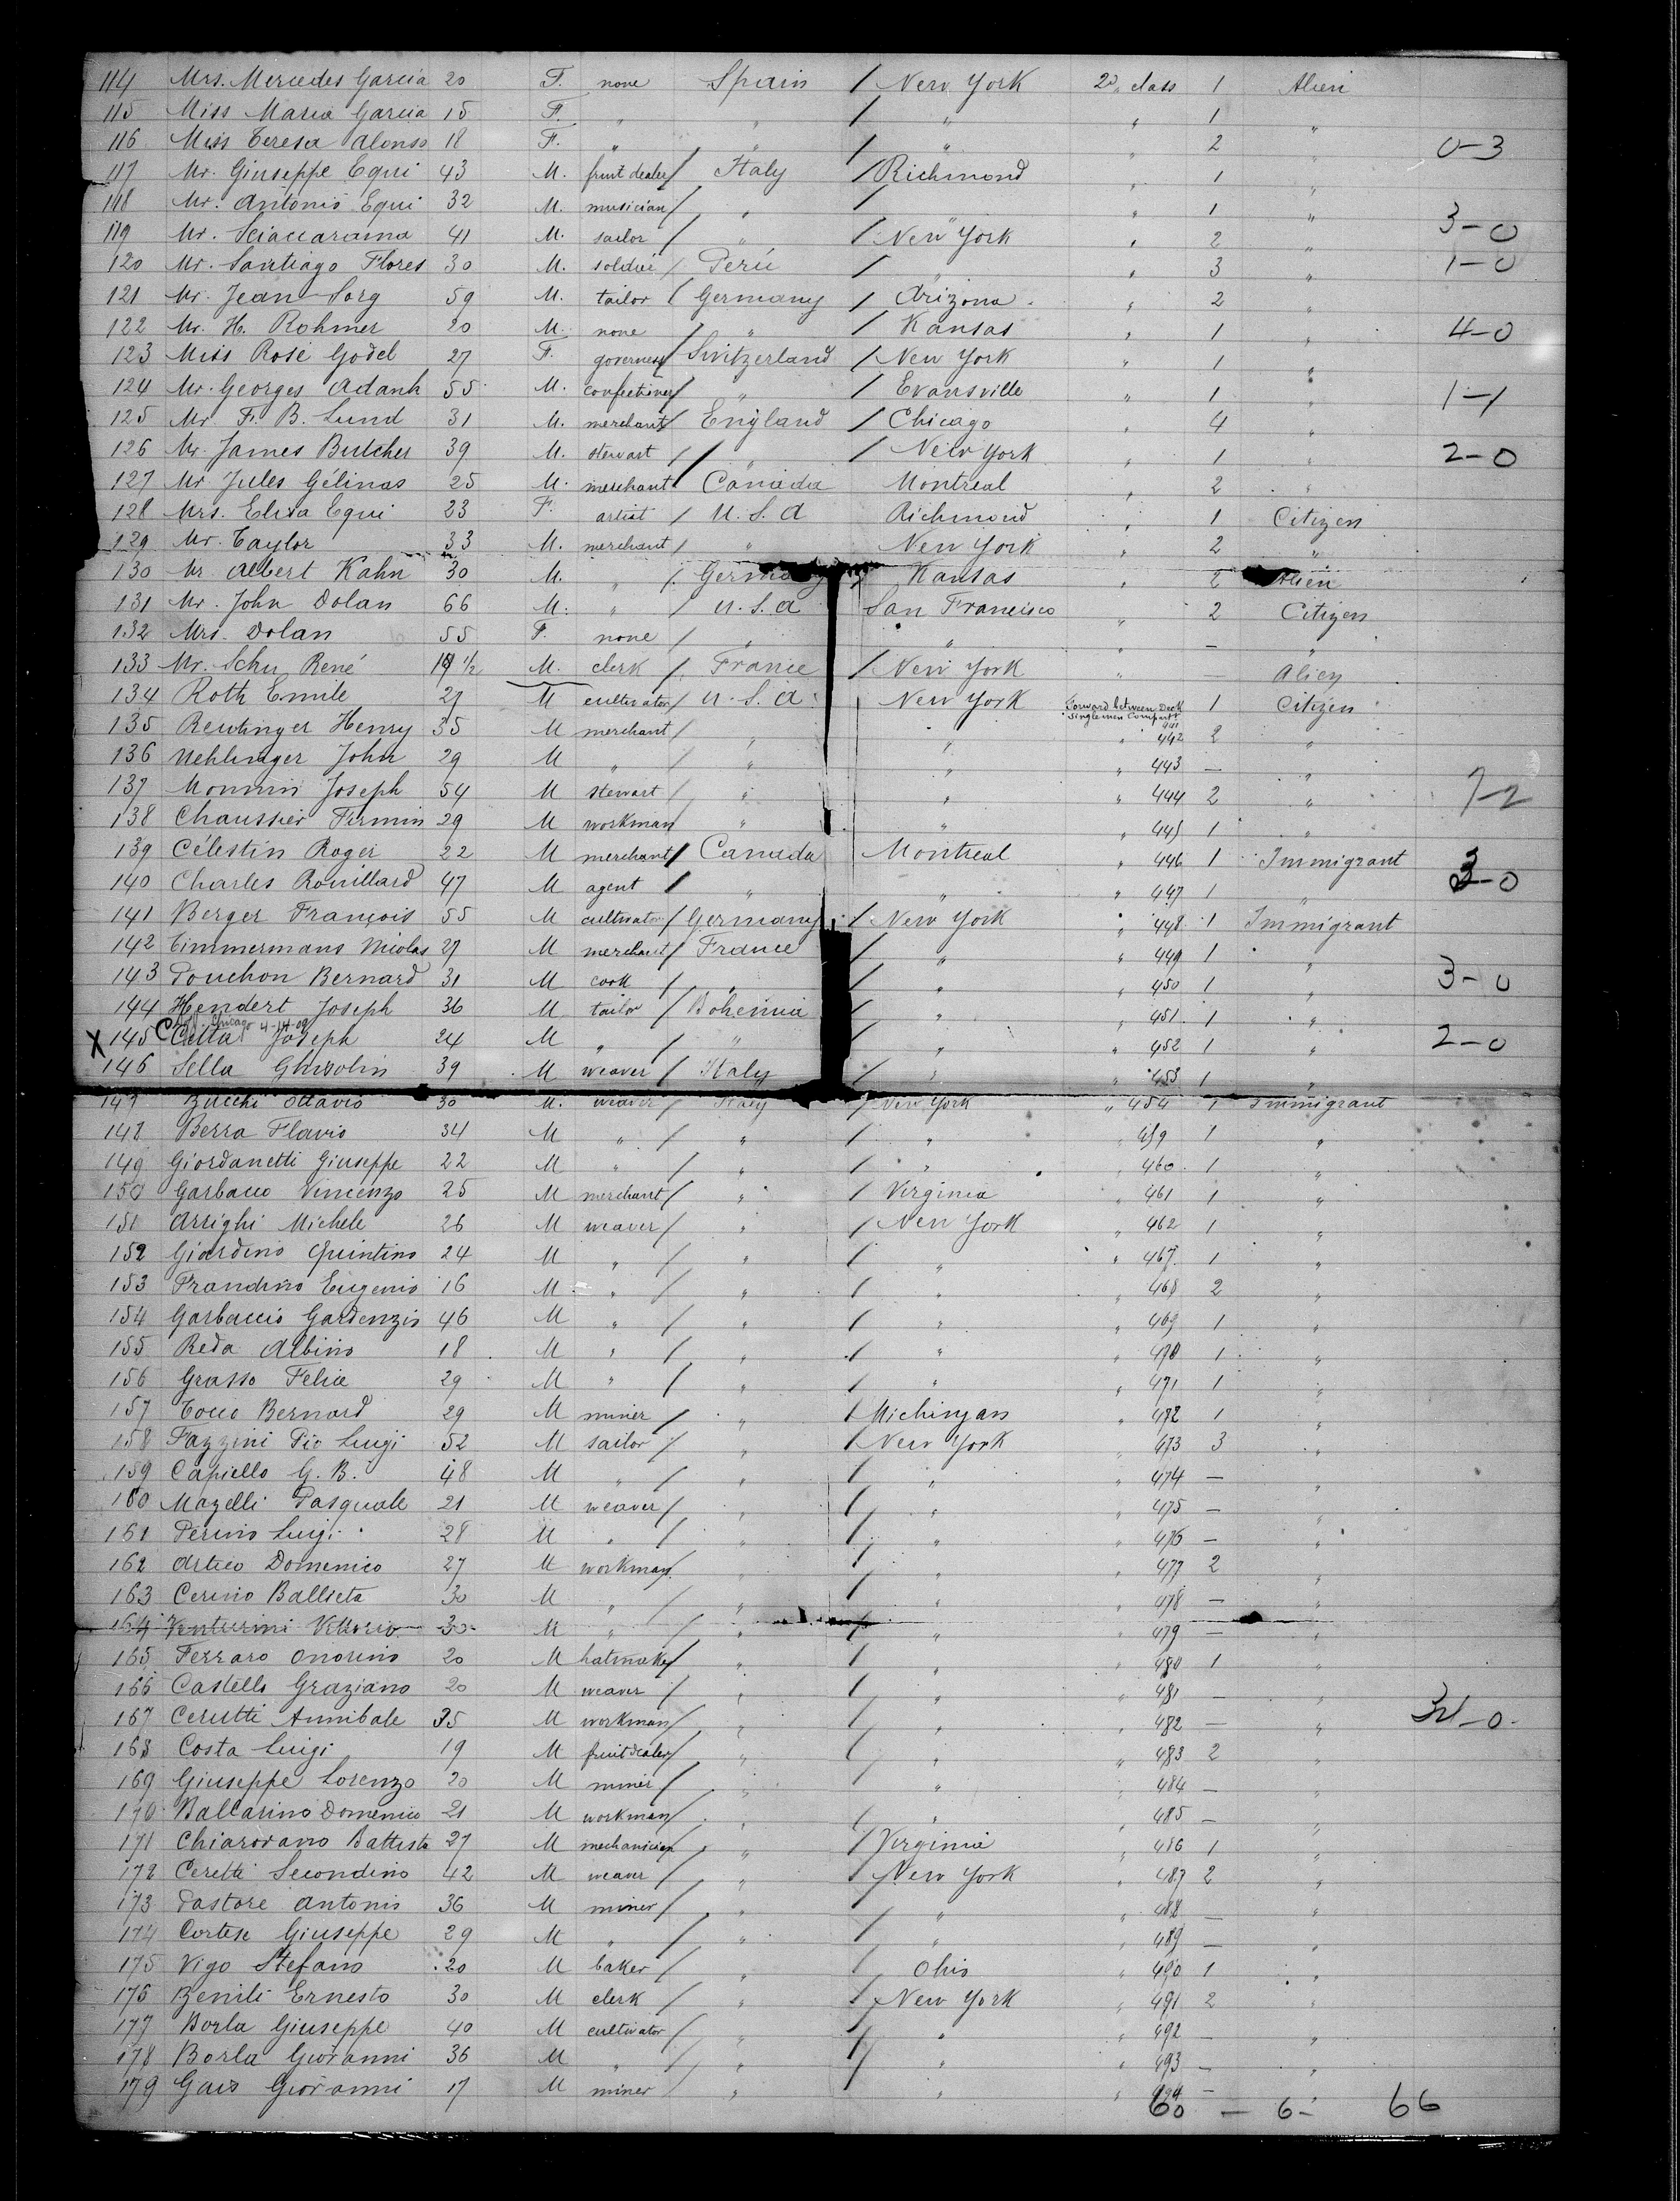 114 Mrs. Mercedes Garcia 20 F. none Spain / New York 2d. class 1 Alien
115 Miss Maria Garcia 15 F. " " / " " 1 "
116 Miss Teresa Alonso 18 F. " " / " " 2 " 0-3
117 Mr. Giuseppe Equi 43 M. fruit dealer / Italy / Richmond " 1 "
118 Mr. Antonio Equi 32 M. musician / " / " " 1 "
119 Mr. Sciaccarama 41 M. sailor / " / New York " 2 " 3-0
120 Mr. Santiago Flores 30 M. / Perú / " " 3 " 1-0
121 Mr. Jean Sorg 59 M. tailor / Germany / Arizona " 2 "
122 Mr. H. Rohmer 20 M. none / " / Kansas " 1 " 4-0
123 Miss Rose Godel 27 F. governess / Switzerland / New York " 1 "
124 Mr. Georges Adank 55 M. confectiner / " / Evansville " 1 " 1-1
125 Mr F. B. Lund 31 M. merchant / England / Chicago " 4 "
126 Mr. James Butcher 39 M. stewart / " / New York " 1 " 2-0
127 Mr Jules Gélinas 25 M. merchant / Canada Montreal " 2 "
128 Mrs. Elisa Equi 23 F. artist / U.S.A Richmond " 1 Citizen
129 Mr. Taylor 33 M. merchant / " New York " 2 "
130 Mr Albert Kahn 30 M. " / Germany / Kansas " 2 Alien
131 Mr. John Dolan 66 M. " / U.S.A San Francisco " 2 Citizen
132 Mrs. Dolan 55 F. none / " " " — "
133 Mr. Schu René 1/2 M. clerk / France / New York " — Alien
134 Roth Emile 27 M cultivator / U.S.A. New York Forward between Deck Singlemen Compart 441 1 Citizen
135 Reutinger Henry 35 M merchant / " " " 442 2 "
136 Nehlinger John 29 M " / " " " 443 — "
137 Monnin Joseph 54 M stewart / " " " 444 2 " 7-2
138 Chaussier Firmin 29 M workman " " " 445 1 "
139 Célestin Roger 22 M merchant / Canada Montreal " 446 1 Immigrant
140 Charles Rouillard 47 M agent / " " " 447 1 " 3-0
141 Berger François 55 M cultivator / Germany / New York " 448 1 Immigrant
142 Timmermans Nicolas 27 M merchant / France / " " 449 1 "
143 Pouchon Bernard 31 M cook / " / " " 450 1 " 3-0
144 Hendert Joseph 36 M tailor / Bohemia / " " 451 1 "
Chicago 4-14-09
X 145 Cetta Joseph 24 M " / " / " " 452 1 " 2-0
146 Sella Ghisolin 39 M weaver / Italy / " " 453 1 "
147 Bucchi Ottavio 30 M. weaver / Italy / New York " 454 1 Immigrant
148 Berra Flavio 34 M " / " / " " 459 1 "
149 Giordanetti Giuseppe 22 M " / " / " " 460 1 "
150 Garbacco Vincenzo 25 M merchant / " / Virginia " 461 1 "
151 Arrighi Michele 26 M weaver / " / New York " 462 1 "
152 Giardino Quintino 24 M " / " / " " 467 1 "
153 Prandino Eugenio 16 M " / " / " " 468 2 "
154 Garbaccio Gardenzio 46 M " / " / " " 469 1 "
155 Reda Albino 18 M " " / " " 470 1 "
156 Grasso Felice 29 M " / " / " " 471 1 "
157 Tocco Bernard 29 M miner / " / Michingan " 472 1 "
158 Fazzini Pio Luigi 52 M sailor / " / New York " 473 3 "
159 Capiello G. B. 48 M " / " / " " 474 — "
160 Mazelli Pasquale 21 M weaver / " / " " 475 — "
161 Perino Luigi 28 M " / " / " " 476 — "
162 Artico Domenico 27 M workman / " / " " 477 2 "
163 Cerino Ballista 30 M " / " / " " 478 — "
164 Venturini Vittorio 30 M " / " / " " 479 — "
165 Ferraro Onorino 20 M hatmaker / " / " " 480 1 "
166 Castello Graziano 20 M weaver / " / " " 481 — "
167 Cerutti Annibale 35 M workman / " / " " 482 — " -0-
168 Costa Luigi 19 M fruitdealer / " / " " 483 2 "
169 Giuseppe Lorenzo 20 M miner / " / " " 484 — "
170 Ballarino Domenico 21 M workman / " / " " 485 — "
171 Chiarovano Battista 27 M mechanician " / Virginia " 486 1 "
172 Ceretti Secondino 42 M weaver / " / New York " 487 2 "
173 Pastore Antonio 36 M miner / " / " " 488 — "
174 Cortese Giuseppe 29 M " / " / " " 489 — "
175 Vigo Stefano 20 M baker / " / Ohio " 490 1 "
176 Beniti Ernesto 30 M clerk / " / New York " 491 2 "
177 Borla Giuseppe 40 M cultivator / " / " " 492 — "
178 Borla Giovanni 36 M " / " / " " 493 — "
179 Gais Giovanni 17 M miner / " " " 494 — "
60 — 6 — 66